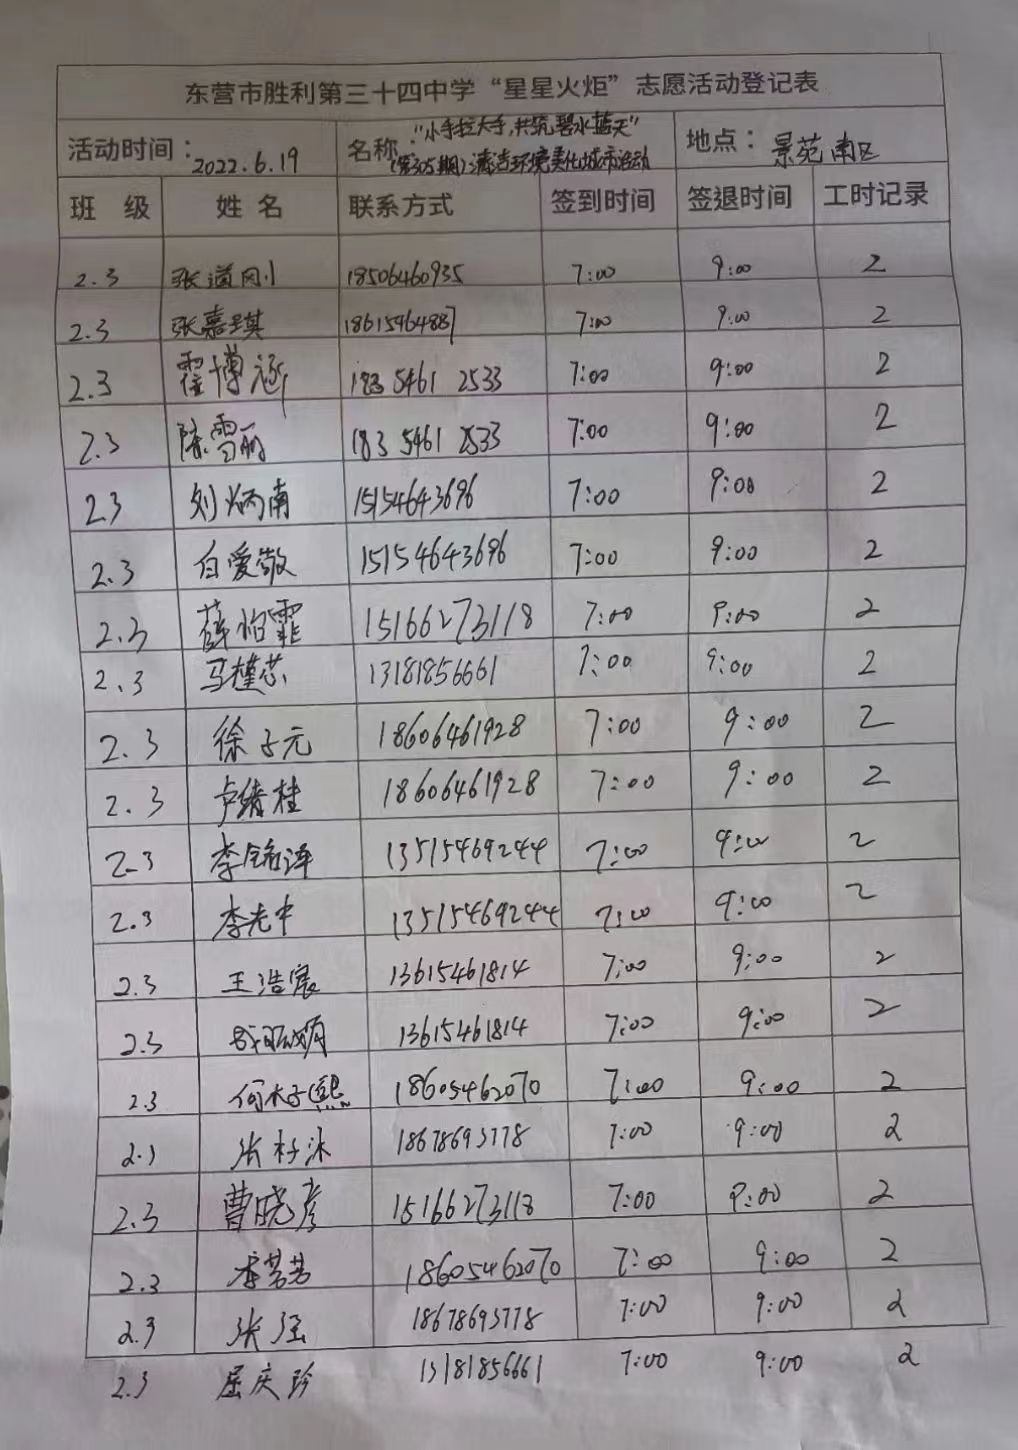 东营市胜利第三十四中学“星星火炬”志愿活动登记表
活动时间：2022.6.19 名称：“小手拉大手，共筑碧水蓝天”（第305期）清洁环境美化城市活动 地点：景苑南区
班 级 姓 名 联系方式 签到时间 签退时间 工时记录
2.3 张道刚 18506460935 7:00 9:00 2
2.3 张嘉琪 18615464887 7:00 9:00 2
2.3 霍博涵 183 5461 2533 7:00 9:00 2
2.3 陈雪丽 183 5461 2533 7:00 9:00 2
2.3 刘炳南 15154643696 7:00 9:00 2
2.3 白爱敬 15154643696 7:00 9:00 2
2.3 薛怡霏 15166273118 7:00 9:00 2
2.3 马槿芯 13181856661 7:00 9:00 2
2.3 徐子元 18606461928 7:00 9:00 2
2.3 卢绪桂 18606461928 7:00 9:00 2
2.3 李铭泽 13515469244 7:00 9:00 2
2.3 李光中 13515469244 7:00 9:00 2
2.3 王浩宸 13615461814 7:00 9:00 2
2.3 13615461814 7:00 9:00 2
2.3 何木子熙 18605462070 7:00 9:00 2
2.3 张籽沐 18678693778 7:00 9:00 2
2.3 曹晓彦 15166273118 7:00 9:00 2
2.3 李芳芳 18605462070 7:00 9:00 2
2.3 张强 18678693778 7:00 9:00 2
2.3 屈庆珍 13181856661 7:00 9:00 2